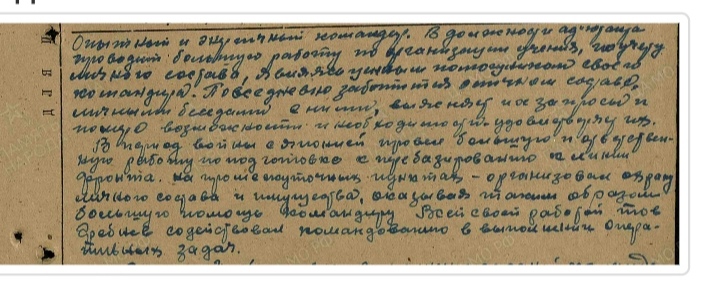 Опытный и энергичный командир. В должности адъютанта
проводит большую работу по организации учения, по учету
личного состава, являясь ценным помощником своего
командира. Повседневно заботится о личном составе,
личными беседами с ними, выясняет их запросы и
по мере возможности и необходимости удовлетворяет их.
В период войны с Японией провел большую и ответствен-
ную работу по подготовке к перебазированию к линии
фронта. На промежуточных пунктах - организовал охрану
личного состава и имущества, оказывая таким образом
большую помощь командиру. Всей своей работой тов
содействовал командованию в выполнении опера-
тивных задач.